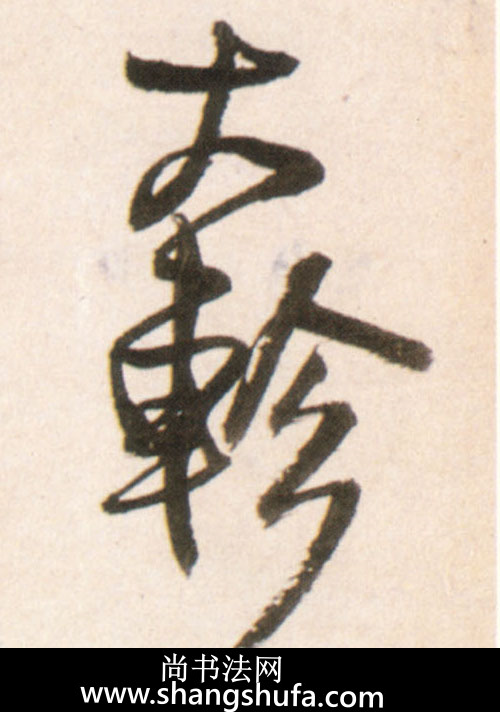 軫
尚书法网
www.shangshufa.com